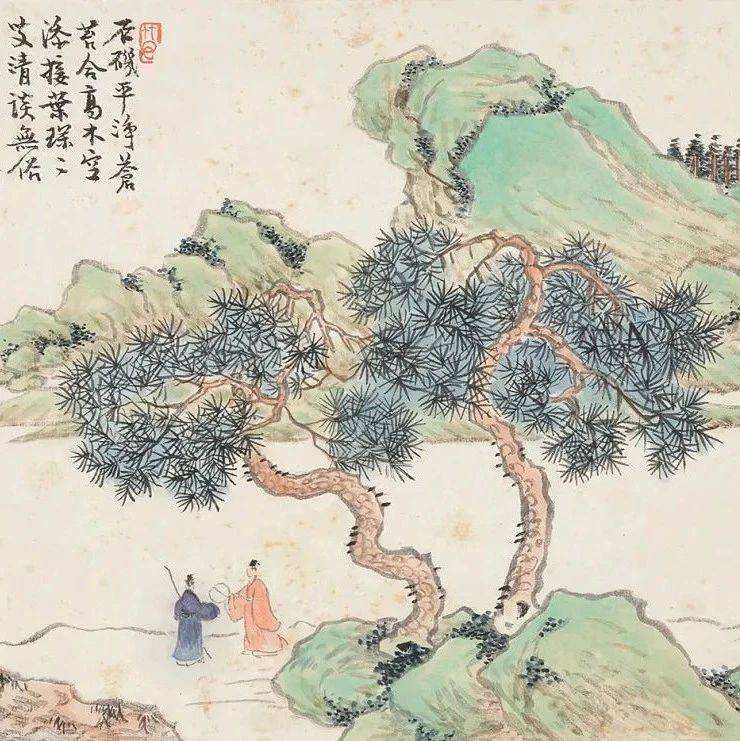 石磯平淨蒼
苔合高木空
添接葉深二
叟清談無俗